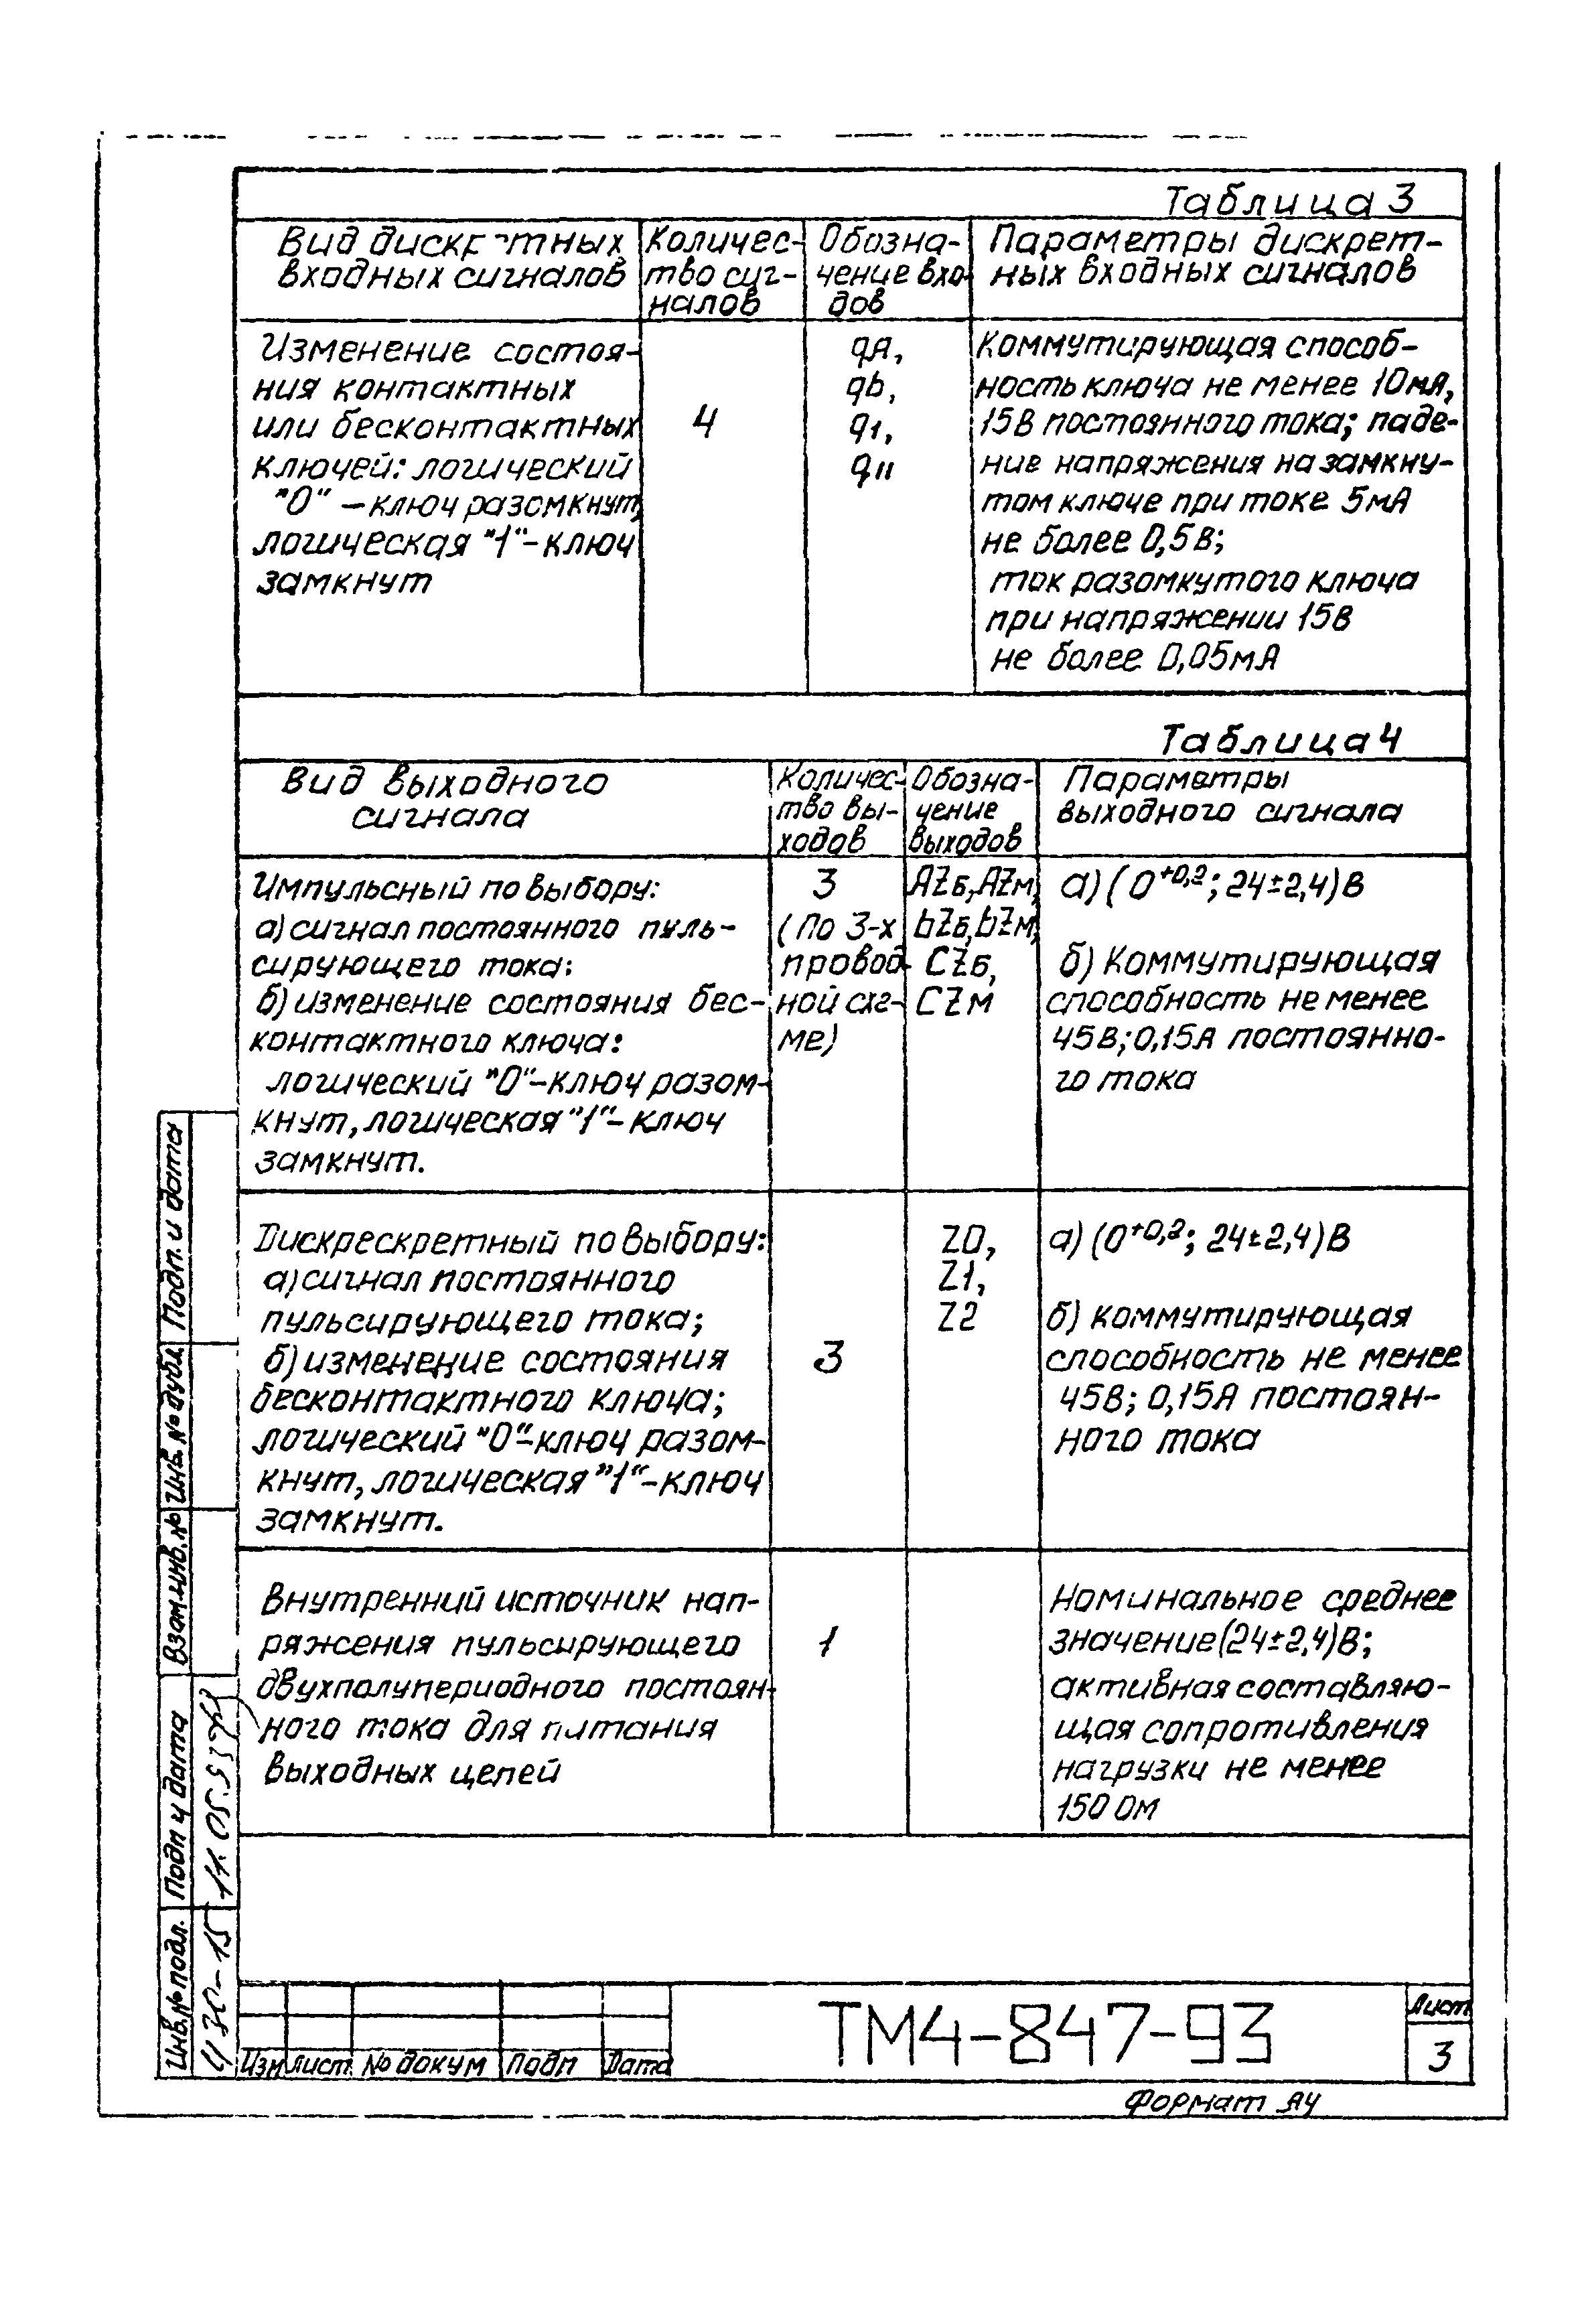 Таблица 3
Вид дискретных
входных сигналов
Количес-
тво сиг-
налов
Обозна-
чение вхо-
дов
Параметры дискрет-
ных входных сигналов
Изменение состоя-
ния контактных
или бесконтактных
ключей: логический
"0" – ключ разомкнут,
логическая "1" – ключ
замкнут
4
qA,
qb,
q1,
q11
Коммутирующая способ-
ность ключа не менее 10мА,
15В постоянного тока; паде-
ние напряжения на замкну-
том ключе при токе 5мА
не более 0,5В;
ток разомкутого ключа
при напряжении 15В
не более 0,05мА
Таблица 4
Вид выходного
сигнала
Количес-
тво вы-
ходов
Обозна-
чение
выходов
Параметры
выходного сигнала
Импульсный по выбору:
а) сигнал постоянного пуль-
сирующего тока:
б) изменение состояния бес-
контактного ключа:
логический "0"-ключ разом-
кнут, логическая "1"-ключ
замкнут.
3
(По 3-х
провод-
ной схе-
ме)
AZб, AZм,
bZб, bZм,
CZб,
CZм
а) (0+0,2; 24±2,4)В
б) Коммутирующая
способность не менее
45В; 0,15А постоянно-
го тока
Дискрескретный по выбору:
а) сигнал постоянного
пульсирующего тока;
б) изменение состояния
бесконтактного ключа;
логический "0"-ключ разом-
кнут, логическая "1"-ключ
замкнут.
3
Z0,
Z1,
Z2
а) (0+0,2; 24±2,4)В
б) коммутирующая
способность не менее
45В; 0,15А постоян-
ного тока
Внутренний источник нап-
ряжения пульсирующего
двухполупериодного постоян-
ного тока для питания
выходных цепей
1
Номинальное среднее
значение (24±2,4)В;
активная составляю-
щая сопротивления
нагрузки не менее
150 Ом
Подп. и дата
Инв. № дубл.
Взам. инв. №
Подп и дата
11.05.93г
Инв. № подл.
430-15
Изм Лист № докум Подп Дата
ТМ4-847-93
Лист
3
Формат А4